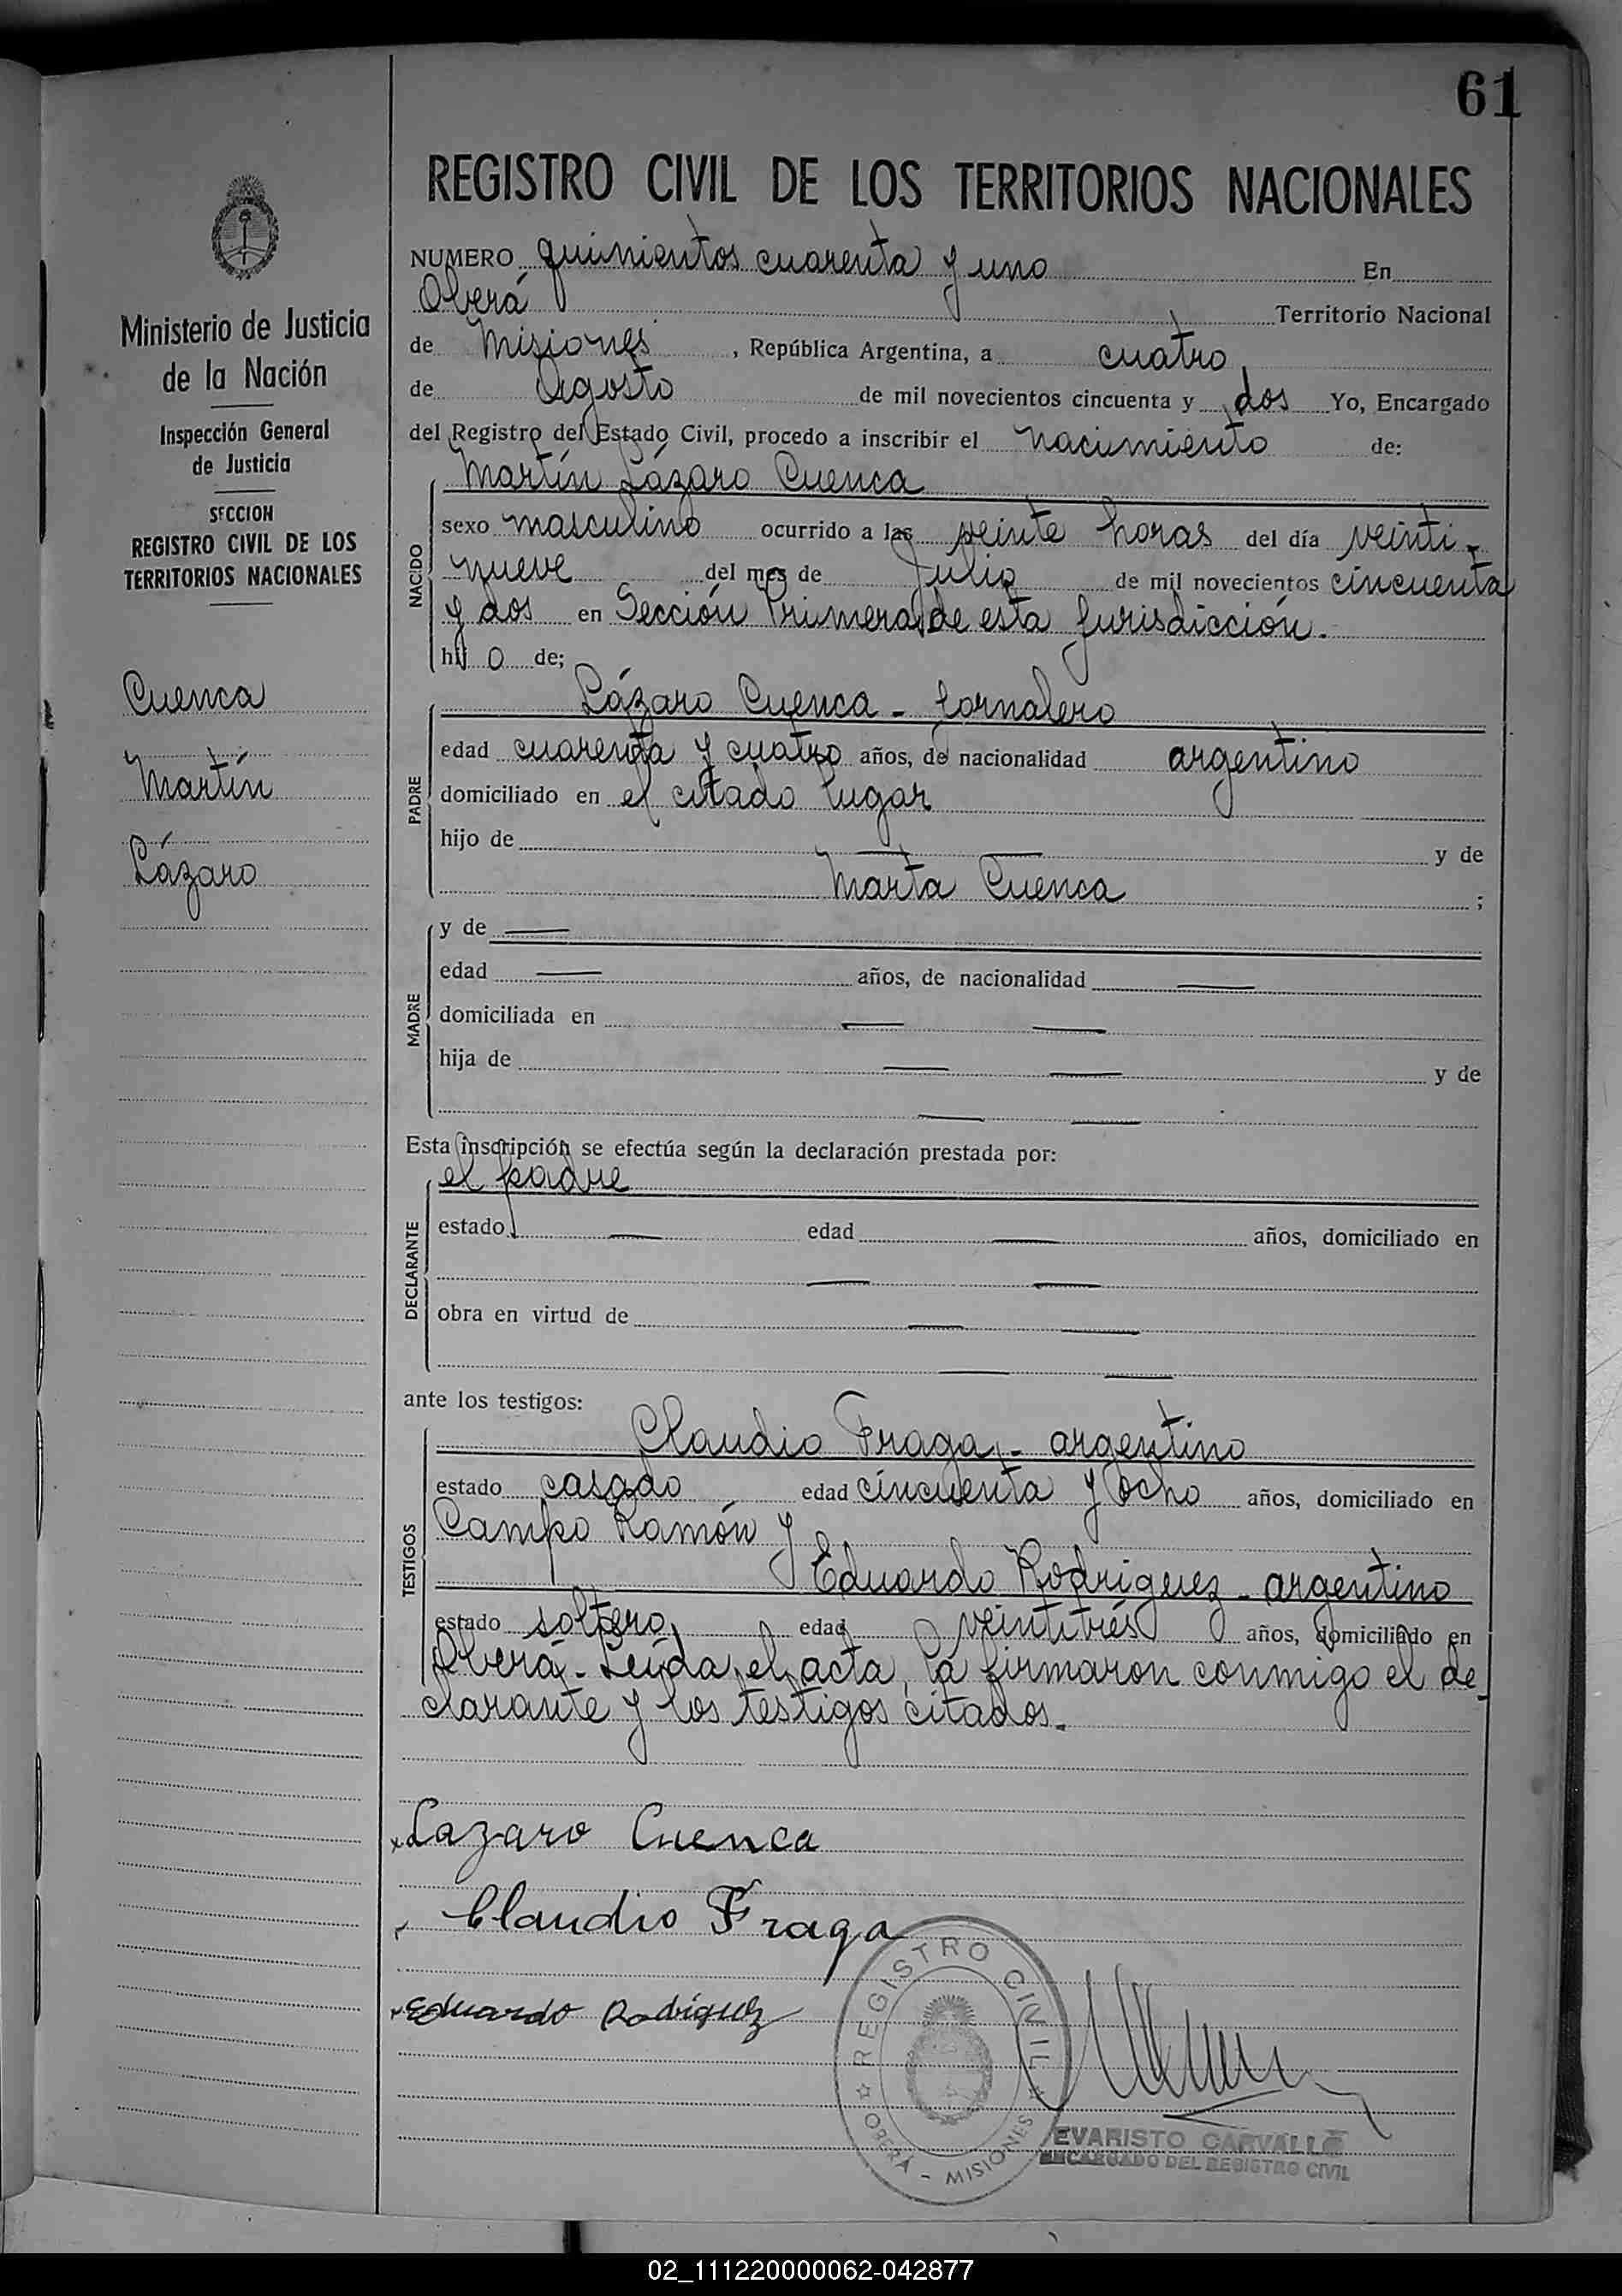 61
REGISTRO CIVIL DE LOS TERRITORIOS NACIONALES
Ministerio de Justicia
de la Nación
Inspección General
de Justicia
SECCION
REGISTRO CIVIL DE LOS
TERRITORIOS NACIONALES
Cuenca
Martín
Lázaro
NUMERO quinientos cuarenta y uno En
Oberá Territorio Nacional
de Misiones, República Argentina, a cuatro
de Agosto de mil novecientos cincuenta y dos Yo, Encargado
del Registro del Estado Civil, procedo a inscribir el nacimiento de:
NACIDO
Martín Lázaro Cuenca
sexo masculino ocurrido a las veinte horas del día veinti-
nueve del mes de Julio de mil novecientos cincuenta
y dos en Sección Primera de esta jurisdicción.
hijo de;
PADRE
Lázaro Cuenca - Jornalero
edad cuarenta y cuatro años, de nacionalidad argentino
domiciliado en el citado lugar
hijo de — — y de
Marta Cuenca ;
MADRE
y de —
edad — años, de nacionalidad —
domiciliada en — —
hija de — — y de
— —
Esta inscripción se efectúa según la declaración prestada por:
DECLARANTE
el padre
estado — edad — años, domiciliado en
— —
obra en virtud de — —
— —
ante los testigos:
TESTIGOS
Claudio Fraga - argentino
estado casado edad cincuenta y ocho años, domiciliado en
Campo Ramón y
Eduardo Rodriguez - argentino
estado soltero edad veintitrés años, domiciliado en
Oberá - Leída el acta, la firmaron conmigo el de-
clarante y los testigos citados.
Lazaro Cuenca
Claudio Fraga
Eduardo Rodríguez
REGISTRO CIVIL
OBERA - MISIONES
EVARISTO CARVALLO
ENCARGADO DEL REGISTRO CIVIL
02_111220000062-042877